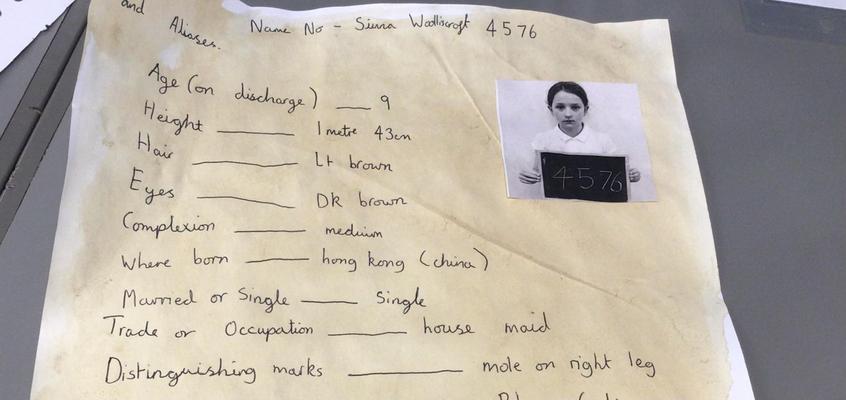 and
Aliases.
Name No - Sienna Woolliscroft 4576
Age (on discharge) __ 9
Height ____ 1 metre 43cm
Hair ____ Lt brown
Eyes ____ DK brown
Complexion ____ medium
Where born ____ hong kong (china)
Married or Single ____ Single
Trade or Occupation ____ house maid
Distinguishing marks ____ mole on right leg
4576